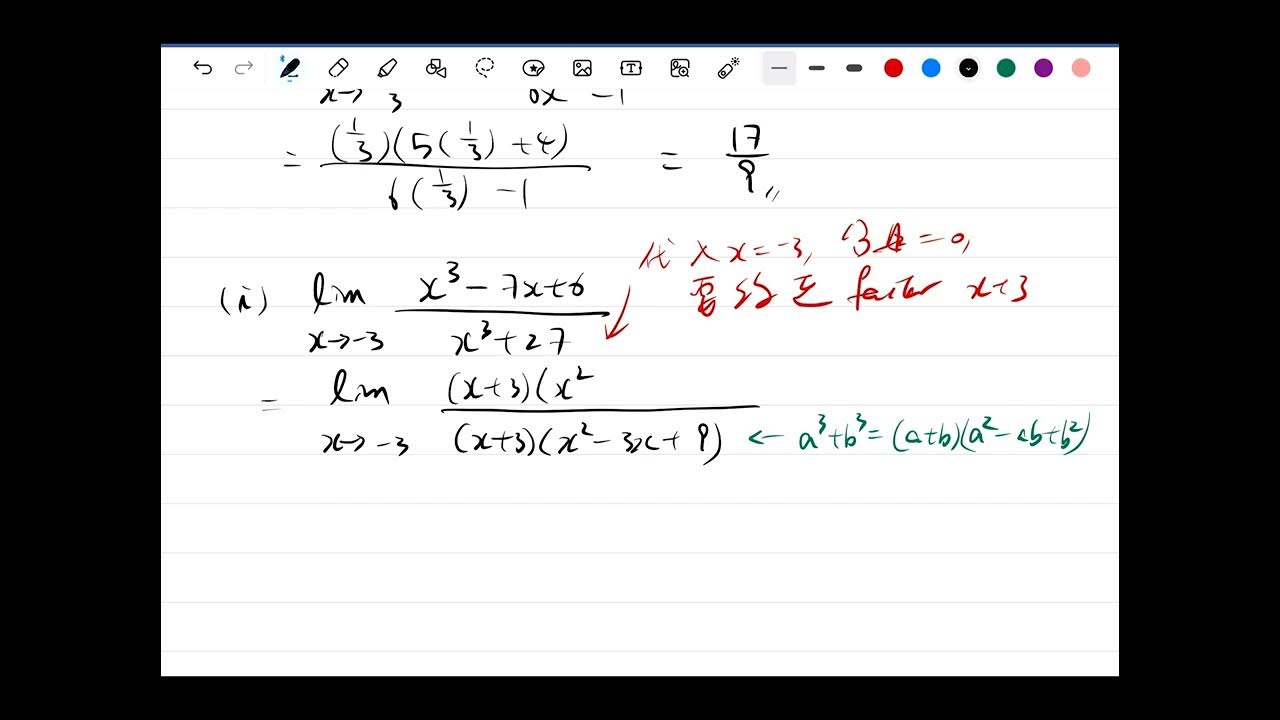 x→ 3 6x −1
= (1/3)(5(1/3) +4) / 6(1/3) −1 = 17/9
代入 x = −3, 分母 = 0,
(ii) lim x→−3 x³ − 7x + 6 / x³ + 27
要約走 factor x+3
= lim x→ −3 (x+3)(x² / (x+3)(x² − 3x + 9) ← a³+b³ = (a+b)(a² − ab + b²)